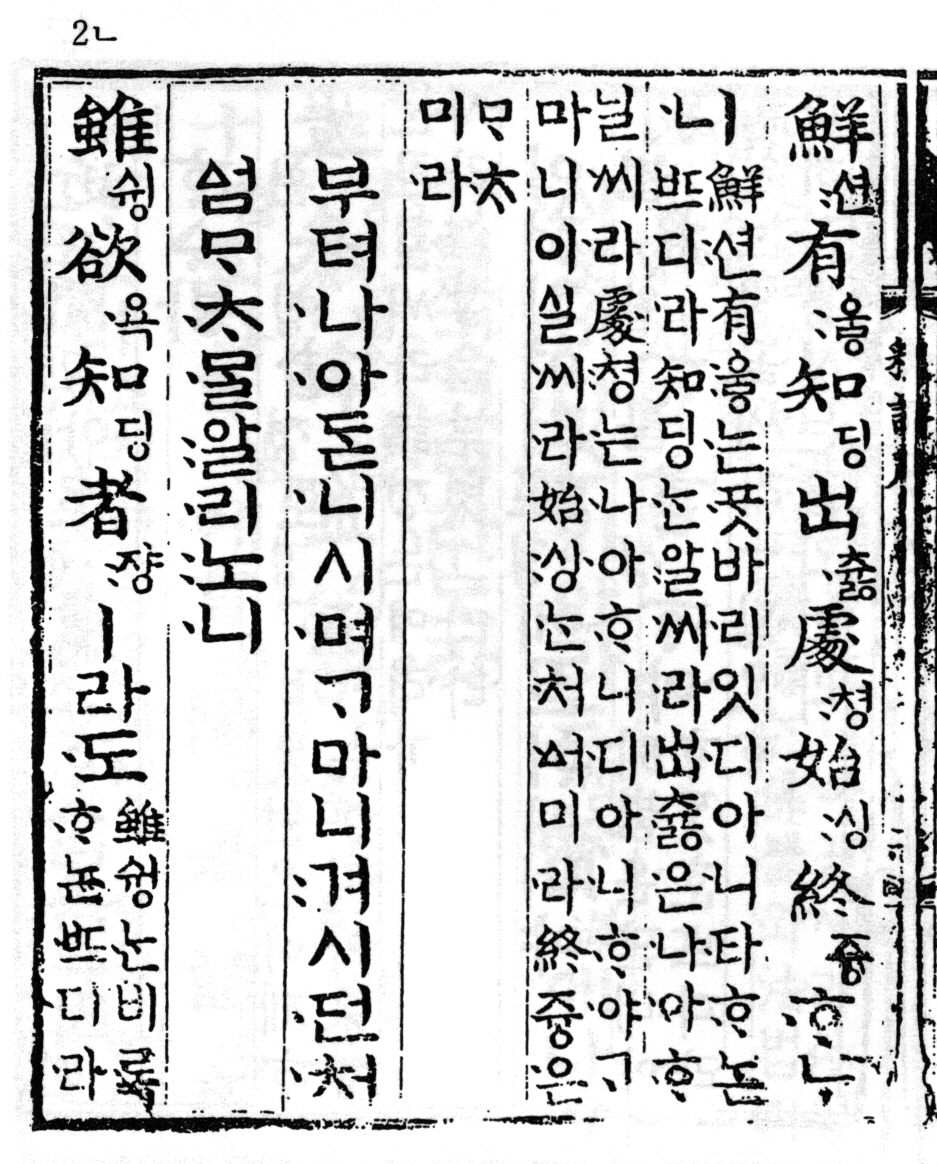 2ㄴ
鮮션有우ᇢ知딩出츄ᇙ處쳥始싱終즁ᄒᆞᄂᆞ
니
鮮션有우ᇢ는풋바리잇디아니타ᄒᆞ논
ᄠᅳ디라知딩ᄂᆞᆫ알씨라出츄ᇙ은나아ᄒᆞ
닐씨라處쳥는나아ᄒᆞ니디아니ᄒᆞ야ᄀᆞ
마니이실씨라始싱ᄂᆞᆫ처ᅀᅥ미라終즁은
ᄆᆞᄎᆞ
미라
부텨나아ᄃᆞᆫ니시며ᄀᆞ마니겨시던처
ᅀᅥᆷᄆᆞᄎᆞᄆᆞᆯ알리노니
雖쉉欲욕知딩者쟝ㅣ라도
雖쉉ᄂᆞᆫ비록
ᄒᆞ논ᄠᅳ디라